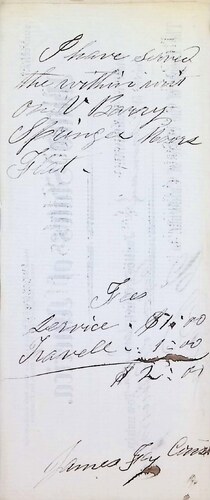 I have served
the within writ
on V Barry
Springer
Flat.
Fees
Service . $1.00
Travell . 1.00
$2.00
James Fay Const